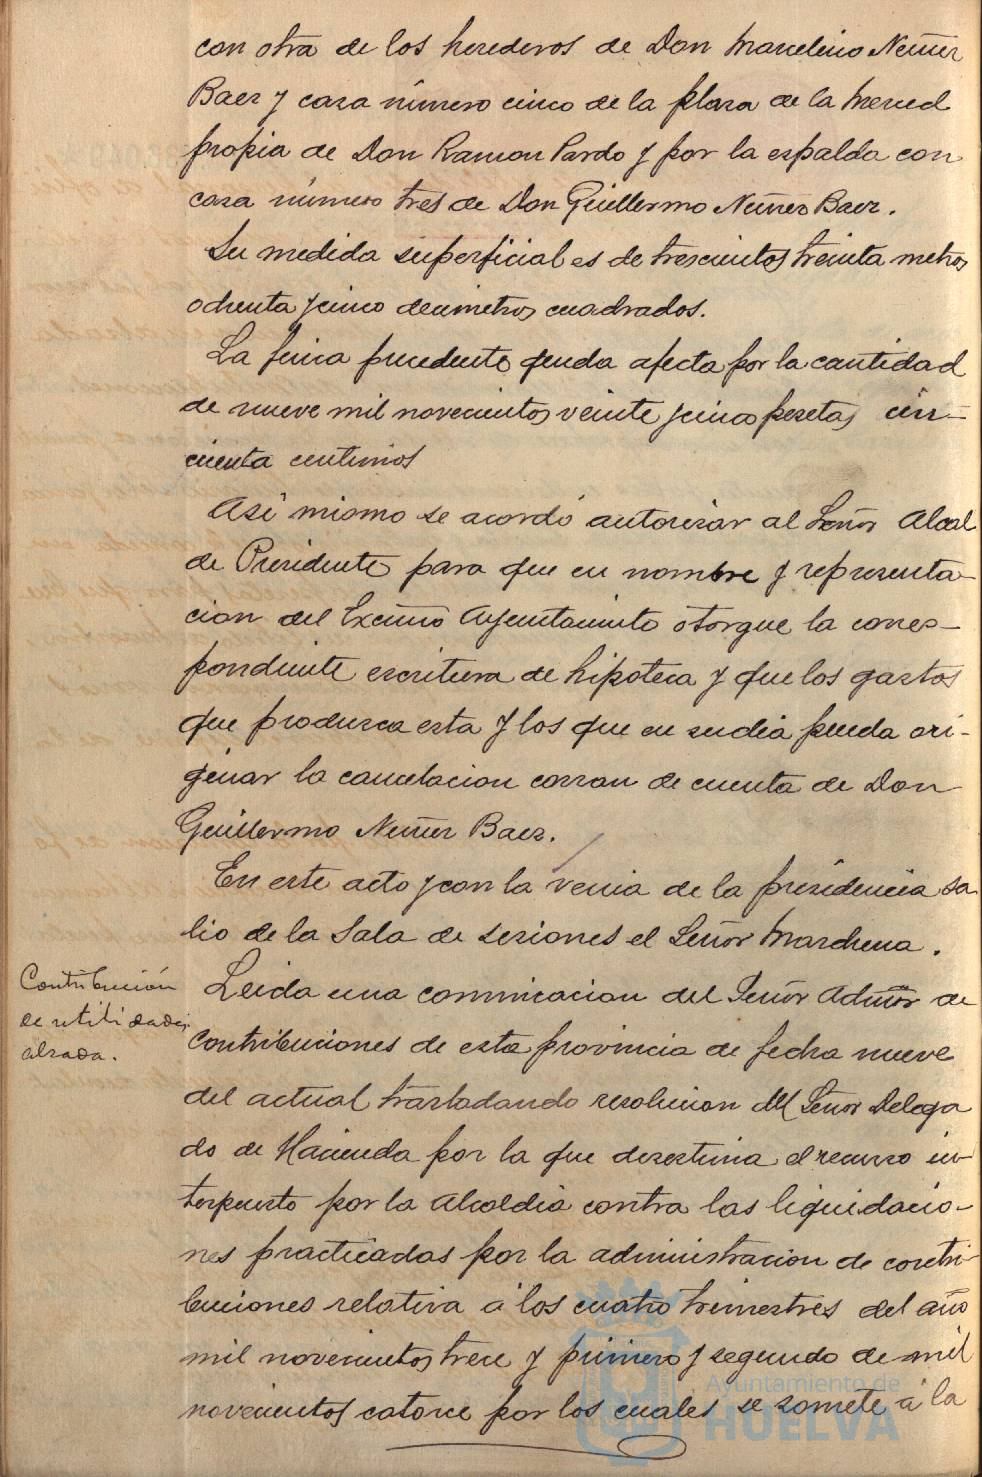 con otra de los herederos de Don Marcelino Nuñez
Baez y casa número cinco de la plaza de la Merced
propia de Don Ramon Pardo y por la espalda con
casa número tres de Don Guillermo Nuñez Baez.
Su medida superficial es de trescientos treinta metros
ochenta y cinco decimetros cuadrados.
La finca precedente queda afecta por la cantidad
de nueve mil novecientos veinte y cinco pesetas cin-
cuenta centimos
Asi mismo se acordó autorizar al Señor Alcal
de Presidente para que en nombre y representa-
cion del Excmo Ayuntamiento otorgue la corres-
pondiente escritura de hipoteca y que los gastos
que produzca esta y los que en su dia pueda ori-
ginar la cancelacion corran de cuenta de Don
Guillermo Nuñez Baez.
En este acto y con la venia de la presidencia sa
lio de la Sala de sesiones el Señor Marchena.
Contribución
de utilidades.
alzada.
Leida una comunicacion del Señor Admor de
Contribuciones de esta provincia de fecha nueve
del actual trasladando resolucion del Señor Delega
do de Hacienda por la que desestima el recurso in
terpuesto por la Alcaldia contra las liquidacio-
nes practicadas por la administracion de contri
buciones relativa á los cuatro trimestres del año
mil novecientos trece y primero y segundo de mil
novecientos catorce por los cuales se somete á la
Ayuntamiento de
HUELVA